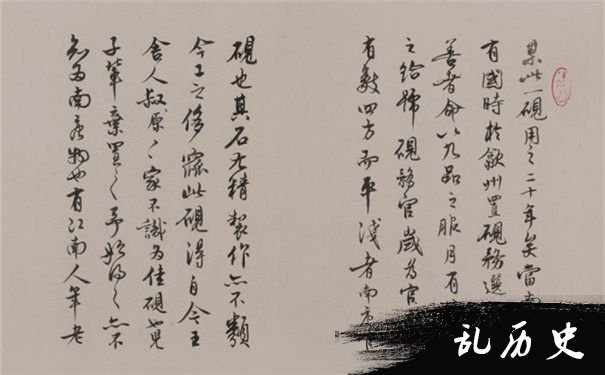 某此一硯用之二十年矣當
有國時於歙州置硯務選
善者命以九品之服月有
之給號硯務官歲為官
有數四方而平淺者南唐
硯也其石尤精製作亦不類
今工之侈窳此硯得自今王
舍人叔原〻家不識為佳硯也兒
子輩棄置之予始得之亦不
知為南唐物也有江南人年老
乱历史